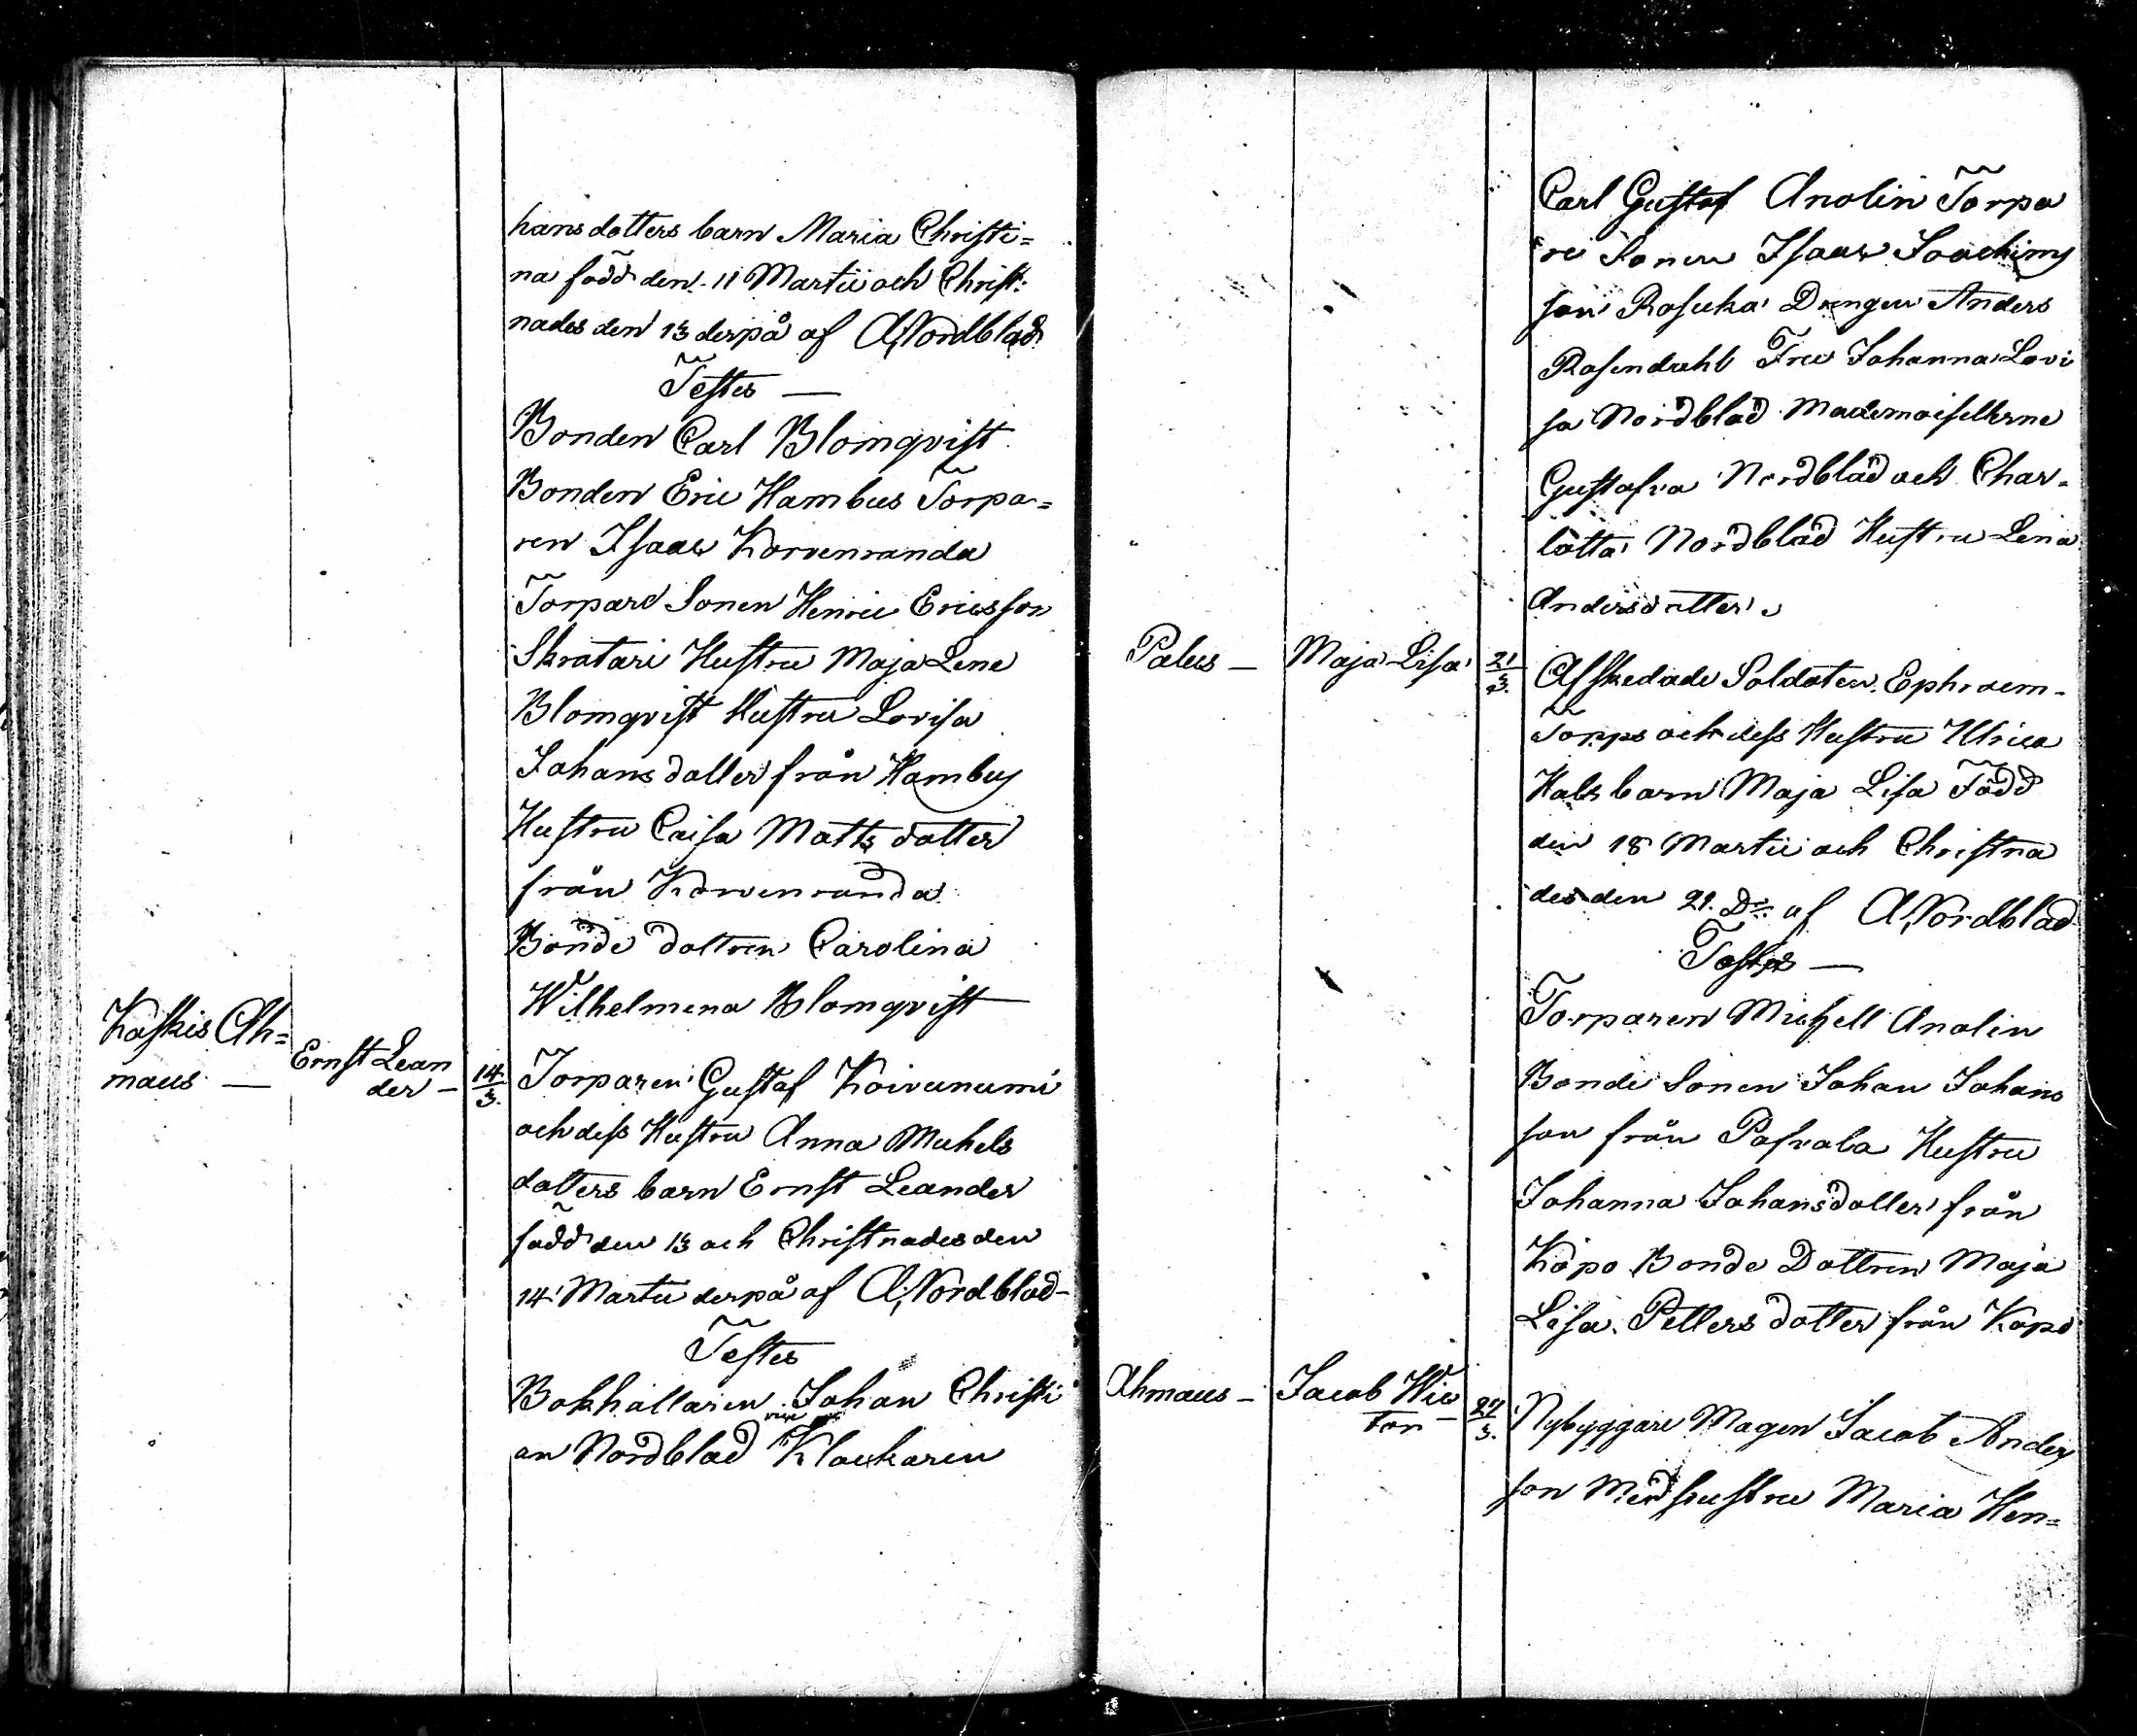 hans dotters barn Maria Christi=
na född den 11 Martii och Christ:
nades den 13 derpå af A, Nordblad
Testes —
Bonden Carl Blomqvist
Bonden Eric Hambus Torpa=
ren Isaac Korvenranda
Torpare Sonen Henric Ericsson
Skratari Hustru Maja Lena
Blomqvist Hustru Lovisa
Johans dotter från Hambus
Hustru Caisa Matts dotter
från Korvenranda
Bonde dottren Carolina
Wilhelmena Blomqvist
Kaskis Ah=
maus —
Ernst Lean
der —
14/3.
Torparen Gustaf Koivuniemi
och dess Hustru Anna Michels
dotters barn Ernst Leander
född den 13 och Christnades den
14 Martii derpå af A, Nordblad-
Testes
Bokhållaren Johan Christi
an Nordblad Klockaren
Carl Gustaf Anolin Torpa
re Sonen Isaac Joachims
son Drengen Anders
Rosendahl Fru Johanna Lovi
sa Nordblad Mademoisellerne
Gustafva Nordblad och Char=
lotta Nordblad Hustru Lena
Andersdotter
Palus —
Maja Lisa
21/3.
Afskedade Soldaten Ephraem
Torpp och dess Hustru Ulrica
Hals barn Maja Lisa Född
den 18 Martii och Christna
des den 21. Do af A, Nordblad
Testes —
Torparen Michell Anolin
Bonde Sonen Johan Johans
son från Hustru
Johanna Johansdotter från
Köpo Bonde Dottren Maja
Lisa Petters dotter från Köpo
Ahmaus —
Jacob Wic
tor —
27/3.
Nybyggare Magen Jacob Anders
son Med hustru Maria Hen=